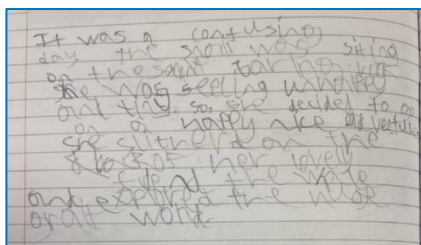 It was a confusing
day the snail was siting
on the same
she was seeling unhappy
and tiny. so, she decided to go
on a happy nice
she slitherd on the
back of her lovely
friend the wale
and explored the
grait world